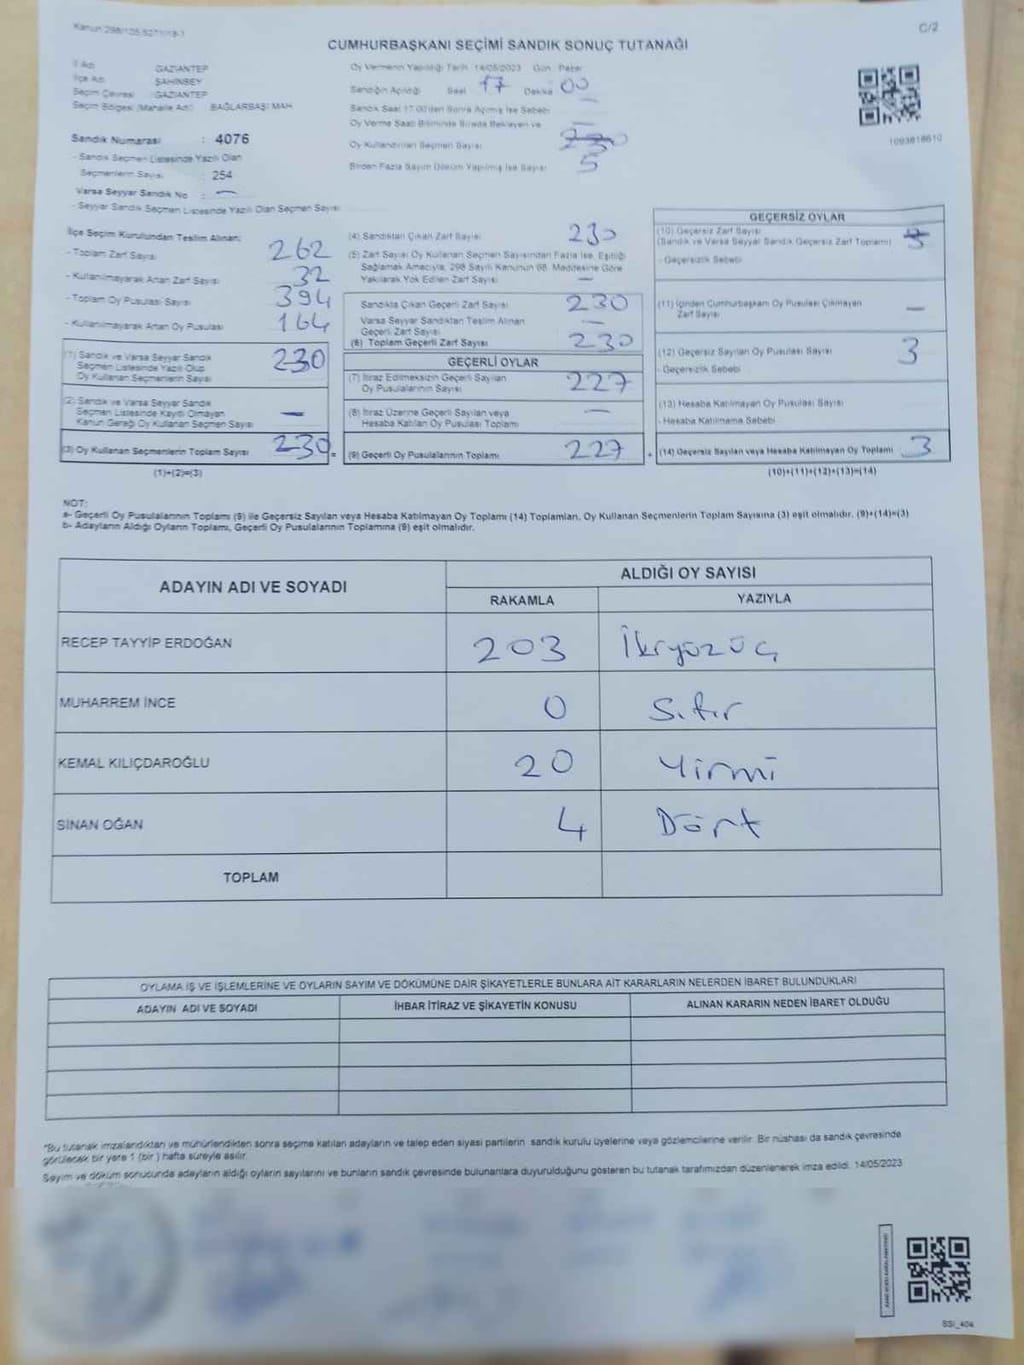 Kanun 298/105,6271/18-1
C/2
CUMHURBAŞKANI SEÇİMİ SANDIK SONUÇ TUTANAĞI
İl Adı GAZİANTEP
İlçe Adı ŞAHİNBEY
Seçim Çevresi : GAZİANTEP
Seçim Bölgesi (Mahalle Adı) BAĞLARBAŞI MAH
Sandık Numarası : 4076
- Sandık Seçmen Listesinde Yazılı Olan
Seçmenlerin Sayısı : 254
Varsa Seyyar Sandık No : —
- Seyyar Sandık Seçmen Listesinde Yazılı Olan Seçmen Sayısı
Oy Vermenin Yapıldığı Tarih :14/05/2023 Gün : Pazar
Sandığın Açıldığı Saat 17 Dakika 00
Sandık Saat 17:00'den Sonra Açılmış İse Sebebi —
Oy Verme Saati Bitiminde Sırada Bekleyen ve —
Oy Kullandırılan Seçmen Sayısı 230
Birden Fazla Sayım Döküm Yapılmış İse Sayısı 5
1093818610
İlçe Seçim Kurulundan Teslim Alınan;
- Toplam Zarf Sayısı 262
- Kullanılmayarak Artan Zarf Sayısı 32
- Toplam Oy Pusulası Sayısı 394
- Kullanılmayarak Artan Oy Pusulası 164
(1) Sandık ve Varsa Seyyar Sandık
Seçmen Listesinde Yazılı Olup 230
Oy Kullanan Seçmenlerin Sayısı
(2) Sandık ve Varsa Seyyar Sandık
Seçmen Listesinde Kaydı Olmayan —
Kanun Gereği Oy Kullanan Seçmen Sayısı
(3) Oy Kullanan Seçmenlerin Toplam Sayısı 230 =
(1)+(2)=(3)
(4) Sandıktan Çıkan Zarf Sayısı 230
(5) Zarf Sayısı Oy Kullanan Seçmen Sayısından Fazla İse, Eşitliği
Sağlamak Amacıyla, 298 Sayılı Kanunun 98. Maddesine Göre
Yakılarak Yok Edilen Zarf Sayısı —
Sandıkta Çıkan Geçerli Zarf Sayısı 230
Varsa Seyyar Sandıktan Teslim Alınan
Geçerli Zarf Sayısı —
(6) Toplam Geçerli Zarf Sayısı 230
GEÇERLİ OYLAR
(7) İtiraz Edilmeksizin Geçerli Sayılan
Oy Pusulalarının Sayısı 227
(8) İtiraz Üzerine Geçerli Sayılan veya
Hesaba Katılan Oy Pusulası Toplamı —
(9) Geçerli Oy Pusulalarının Toplamı 227 +
GEÇERSİZ OYLAR
(10) Geçersiz Zarf Sayısı
(Sandık ve Varsa Seyyar Sandık Geçersiz Zarf Toplamı)
- Geçersizlik Sebebi
(11) İçinden Cumhurbaşkanı Oy Pusulası Çıkmayan
Zarf Sayısı —
(12) Geçersiz Sayılan Oy Pusulası Sayısı 3
- Geçersizlik Sebebi
(13) Hesaba Katılmayan Oy Pusulası Sayısı
- Hesaba Katılmama Sebebi
(14) Geçersiz Sayılan veya Hesaba Katılmayan Oy Toplamı 3
(10)+(11)+(12)+(13)=(14)
NOT:
a- Geçerli Oy Pusulalarının Toplamı (9) ile Geçersiz Sayılan veya Hesaba Katılmayan Oy Toplamı (14) Toplamları, Oy Kullanan Seçmenlerin Toplam Sayısına (3) eşit olmalıdır. (9)+(14)=(3)
b- Adayların Aldığı Oyların Toplamı, Geçerli Oy Pusulalarının Toplamına (9) eşit olmalıdır.
ADAYIN ADI VE SOYADI
ALDIĞI OY SAYISI
RAKAMLA YAZIYLA
RECEP TAYYİP ERDOĞAN 203 İkiyüzüç
MUHARREM İNCE 0 Sıfır
KEMAL KILIÇDAROĞLU 20 Yirmi
SİNAN OĞAN 4 Dört
TOPLAM
OYLAMA İŞ VE İŞLEMLERİNE VE OYLARIN SAYIM VE DÖKÜMÜNE DAİR ŞİKAYETLERLE BUNLARA AİT KARARLARIN NELERDEN İBARET BULUNDUKLARI
ADAYIN ADI VE SOYADI İHBAR İTİRAZ VE ŞİKAYETİN KONUSU ALINAN KARARIN NEDEN İBARET OLDUĞU
*Bu tutanak imzalandıktan ve mühürlendikten sonra seçime katılan adayların ve talep eden siyasi partilerin sandık kurulu üyelerine veya gözlemcilerine verilir. Bir nüshası da sandık çevresinde
görülecek bir yere 1 (bir ) hafta süreyle asılır.
Sayım ve döküm sonucunda adayların aldığı oyların sayılarını ve bunların sandık çevresinde bulunanlara duyurulduğunu gösteren bu tutanak tarafımızdan düzenlenerek imza edildi. 14/05/2023
SSI_404